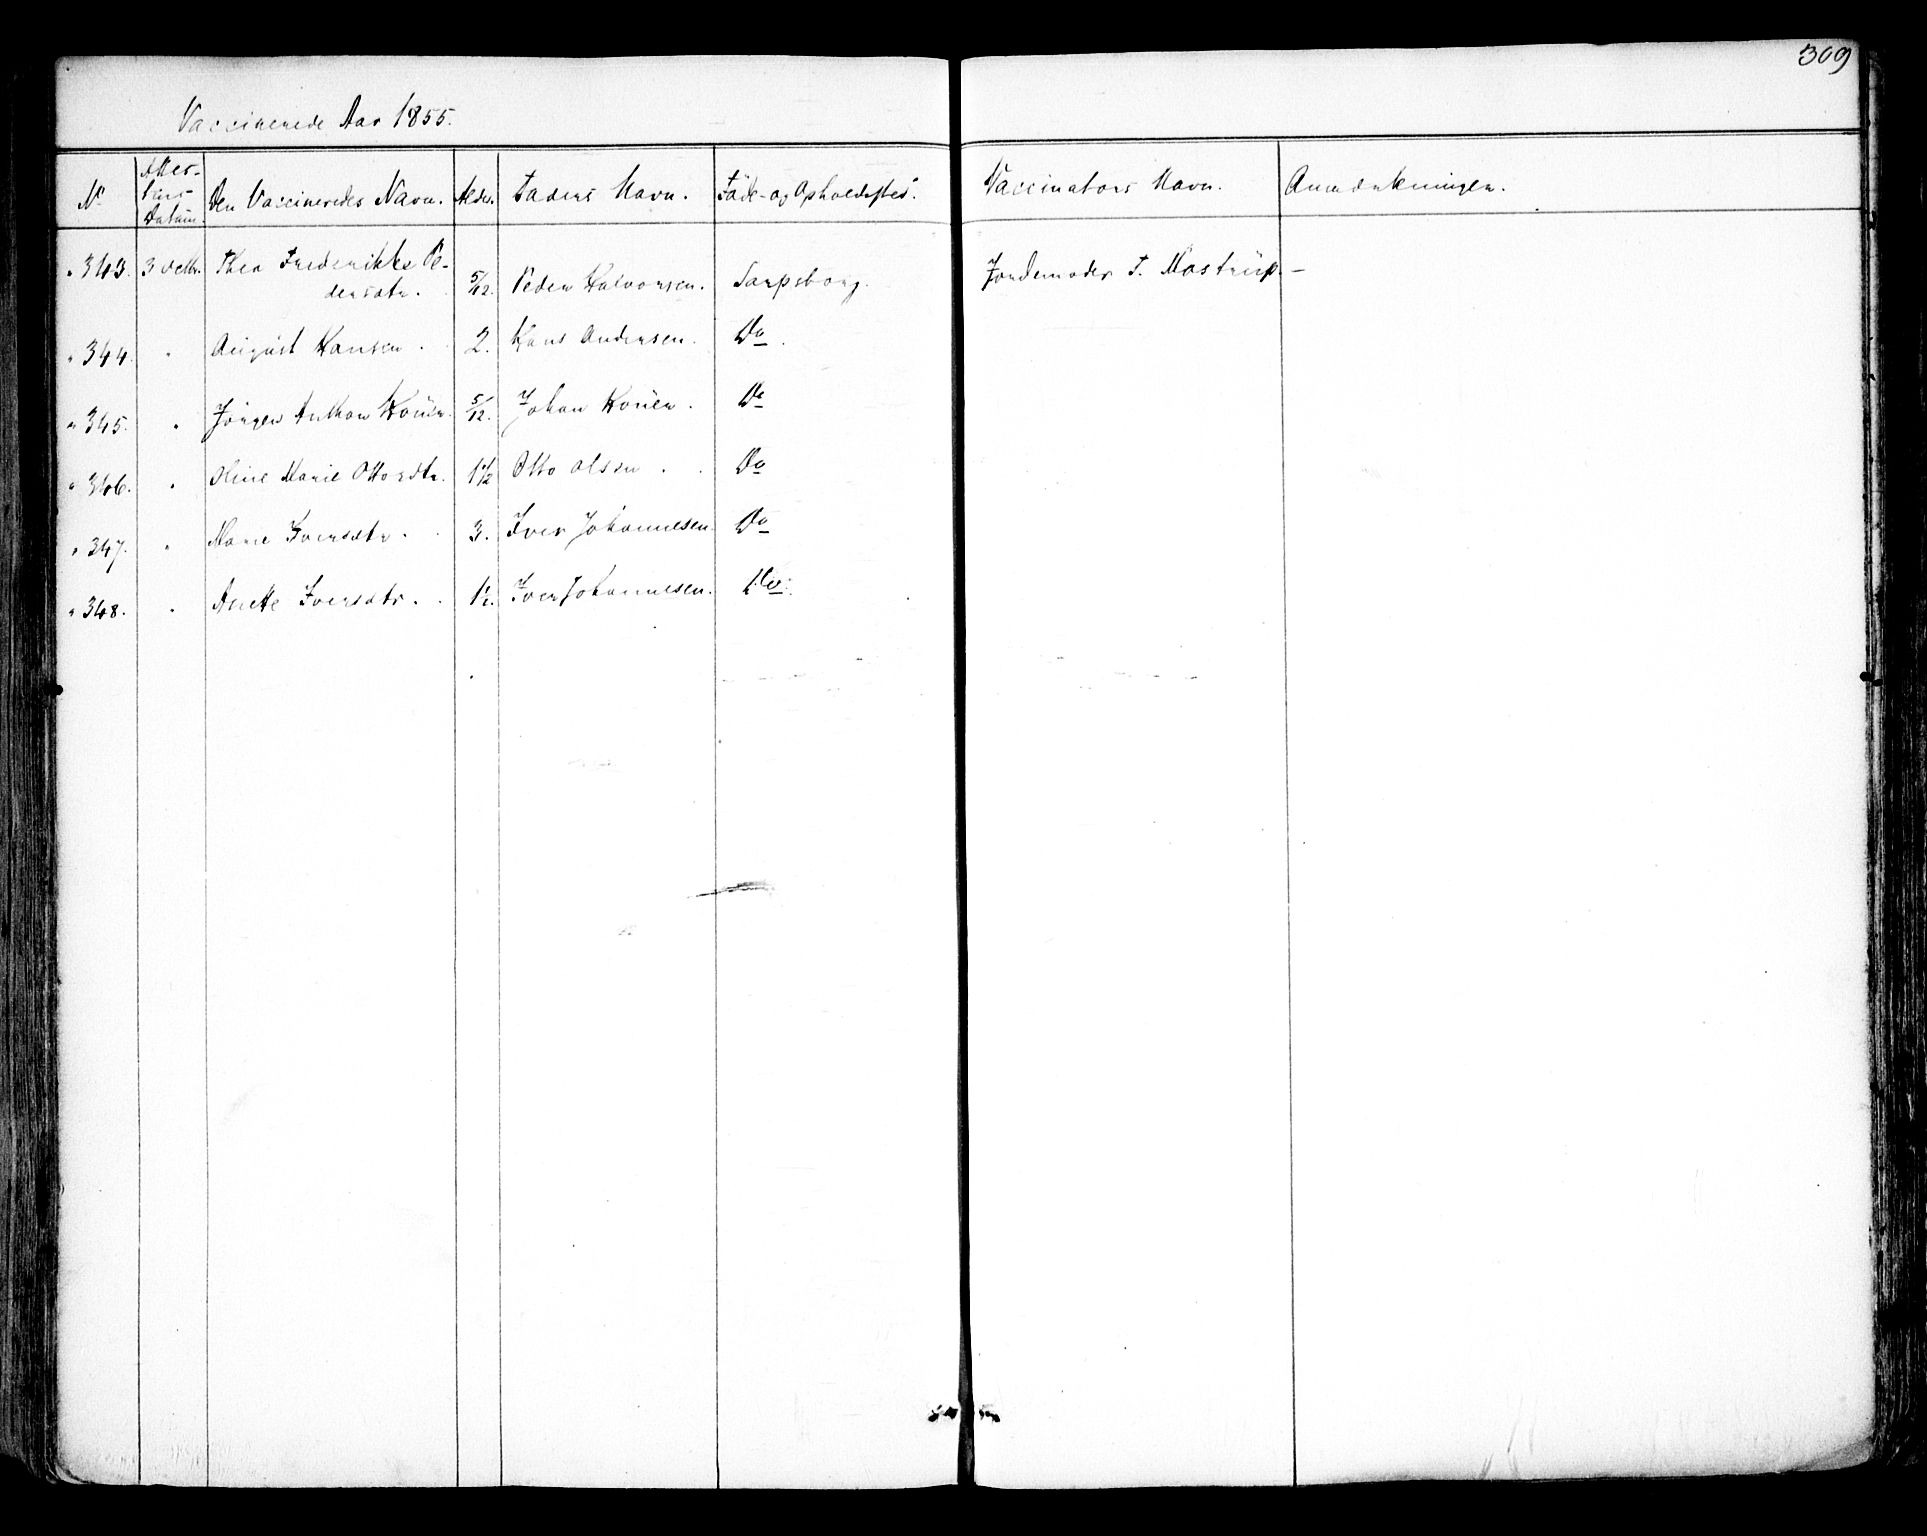 309
Vaccinerede Aar 1855.
No | Attes- tens Datum | Den Vaccineredes Navn. | Alder. | Faders Navn. | Föde- og Opholdssted. | Vaccinators Navn. | Anmærkninger.
" 343. | 3 Octbr. | Thea Frederikke Pe-
dersdtr. | 5/12. | Peder Halvorsen. | Sarpsborg. | Jordemoder T. Mostrüp. –
" 344. | " | August Hansen. | 2. | Hans Andersen. | Do.
" 345. | " | Jörgen Anthon | 5/12. | Johan | Do
" 346. | " | Oline Marie Ottosdtr. | 1 1/2 | Otto Olsen. | Do
" 347. | " | Marie Iversdtr. | 3. | Iver Johannesen. | Do
" 348. | " | Anette Iversdtr. | Iver Johannesen. | Do.